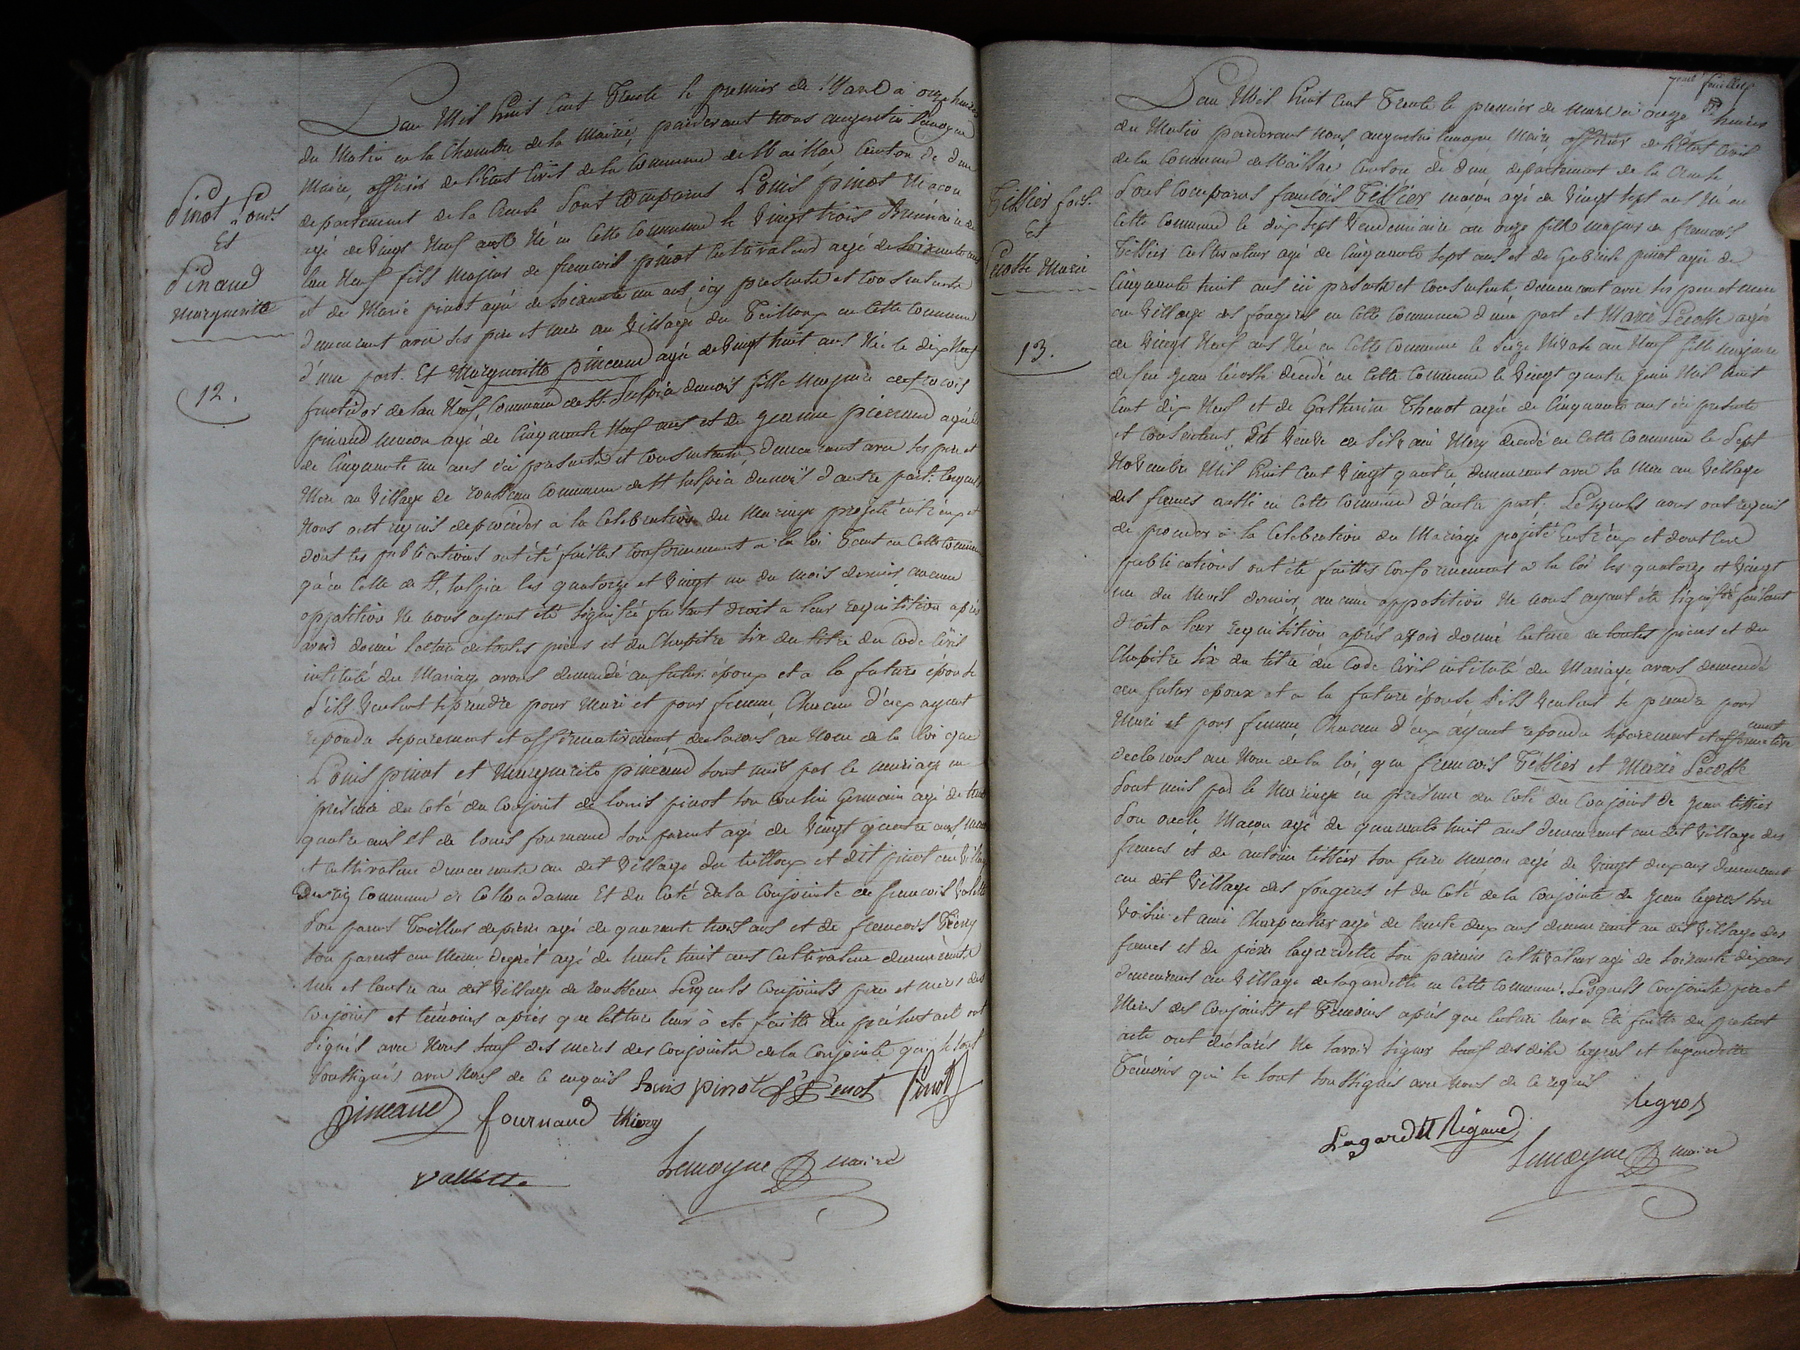 Pinot Louis
Et
Pinaud
Marguerite
12.
L'an Mil huit Cent Trente le premier de Mars à onze heures
du Matin en la Chambre de la Mairie, pardevant nous augustin Lemoyne
Maire, officier de l'Etat Civil de la Commune de Maillac Canton de dun
departement de la Creuse Sont Comparus Louis pinot Maçon
agé de Vingt Neuf ans Né en Cette Commune le Vingt trois de
l'an Neuf fils Majeur de francois pinot Cultivateur agé de Soixante ans
et de Marie pinot agée de Soixante un ans, icy presents et Consentents
demeurant avec Ses pere et mere au Village du Teilloux en Cette Commune
d'une part. Et Marguerite pineaud agée de Vingt huit ans Née le dix Neuf
fructidor de l'an Neuf, Commune de St. Sulpice dunois fille Majeure de francois
pinaud maçon agé de Cinquante Neuf ans et de jeanne pineaud agée
de Cinquante un ans ici presents et Consentents demeurant avec Ses pere et
Mere au Village de rousseau Commune de St Sulpice dunois d'autre part. lesquels
Nous ont requis de proceder à la Celebration du Mariage projeté entr'eux et
dont les publications ont été faittes Conformement a la loi Tant en Cette Commune
qu'en Celle de St. Sulpice les quatorze et Vingt un du mois dernier aucune
opposition Ne nous ayant été Signifiée faisant droit a leur requisition après
avoir donné Lecture de toutes pieces et du Chapitre Six du titre du Code Civil
intitulé du Mariage avons demandé au futur époux et a la future épouse
S'ils Veulent se prendre pour Mari et pour femme, Chacun d'eux ayant
repondu Separement et affirmativement declarons au Nom de la loi que
Louis pinot et Marguerite pineaud Sont unis par le mariage en
presence du Coté du Conjoint de Louis pinot Son Cousin Germain agé de trente
quatre ans et de Louis fournaud Son parent agé de Vingt quatre ans, maçon
et Cultivateur demeurants au dit Village du teilloux et dit pinot au Village
Commune de Collondanne Et du Coté de la Conjointe de francois Valette
Son parent Tailleur de pierre agé de quarante trois ans et de francois Thiery
Son parent au Meme degré agé de trente huit ans Cultivateur demeurants
l'un et l'autre au dit Village de rousseau Lesquels Conjoints pere et meres des
Conjoint et témoins après que lecture leur à eté faitte du présent acte ont
Signés avec Nous Sauf des meres des Conjoints de la Conjointe qui Se Sont
Soussignés avec Nous de Ce enquis Louis pinot Pinot Pinot
Pineaud fournaud thiery
Vallette Lemoyne maire
7eme feuillet
Tissier fois.
Et
Lecosse Marie
13.
L'an Mil huit Cent Trente le premier de Mars à onze heures
du Matin pardevant Nous, augustin Lemoyne Maire, officier de l'Etat Civil
de la Commune de Maillac Canton de dun departement de la Creuse
Sont Comparus francois Tissier maçon agé de Vingt Sept ans Né en
Cette Commune le dix Sept Vendemiaire an onze fils majeur de francois
Tissier Cultivateur agé de Cinquante Sept ans et de Gabrielle pinot agée de
Cinquante huit ans ici presents et Consentents, demeurant avec Ses pere et mere
au Village des fougeres en Cette Commune d'une part et Marie Lecosse agée
de Vingt Neuf ans Née en Cette Commune le Seize Nivose an Neuf fille Majeure
de feu Jean lecosse decedé en Cette Commune le Vingt quatre Juin Mil huit
Cent dix Neuf et de Catherine Thenot agée de Cinquante ans ici presente
et Consentente, Et Veuve de Silvain Mory decedé en Cette Commune le Sept
Novembre Mil huit Cent Vingt quatre demeurant avec Sa Mere au Village
des fermes aussi en Cette Commune d'autre part. Lesquels nous ont requis
de proceder à la Celebration du Mariage projeté Entr'eux et dont les
publications ont été faittes Conformement a la loi les quatorze et Vingt
un du Mois dernier, aucune opposition Ne nous ayant été Signifiée faisant
droit a leur requisition après avoir donné lecture de toutes pieces et du
Chapitre Six du titre du Code Civil intitulé du Mariage avons demandé
au futur époux et a la future épouse S'ils Veulent Se prendre pour
Mari et pour femme, Chacun d'eux ayant repondu Separement et affirmativement
declarons au Nom de la loi, que francois Tissier et Marie Lecosse
Sont unis par le Mariage en presence du Coté du Conjoint de Jean tissier
Son oncle, Maçon agé de quarante huit ans demeurant au dit Village des
fermes et de antoine tissier Son frere maçon agé de Vingt deux ans demeurant
au dit Village des fougeres et du Coté de la Conjointe de Jean legros Son
Voisin et ami Charpentier agé de trente deux ans demeurant au dit Village des
fermes et de pierre lagardette Son parain Cultivateur agé de Soixante dix ans
demeurant au Village de lagardette en Cette Commune. Lesquels Conjoints pere et
Meres des Conjoints et Témoins après que lecture leur a Eté faitte du présent
acte ont déclarés Ne Savoir Signer Sauf des dits legros et lagardette
Témoins qui Se Sont Soussignés avec Nous de Ce requis
Legros
Lagardette Rigaud
Lemoyne maire